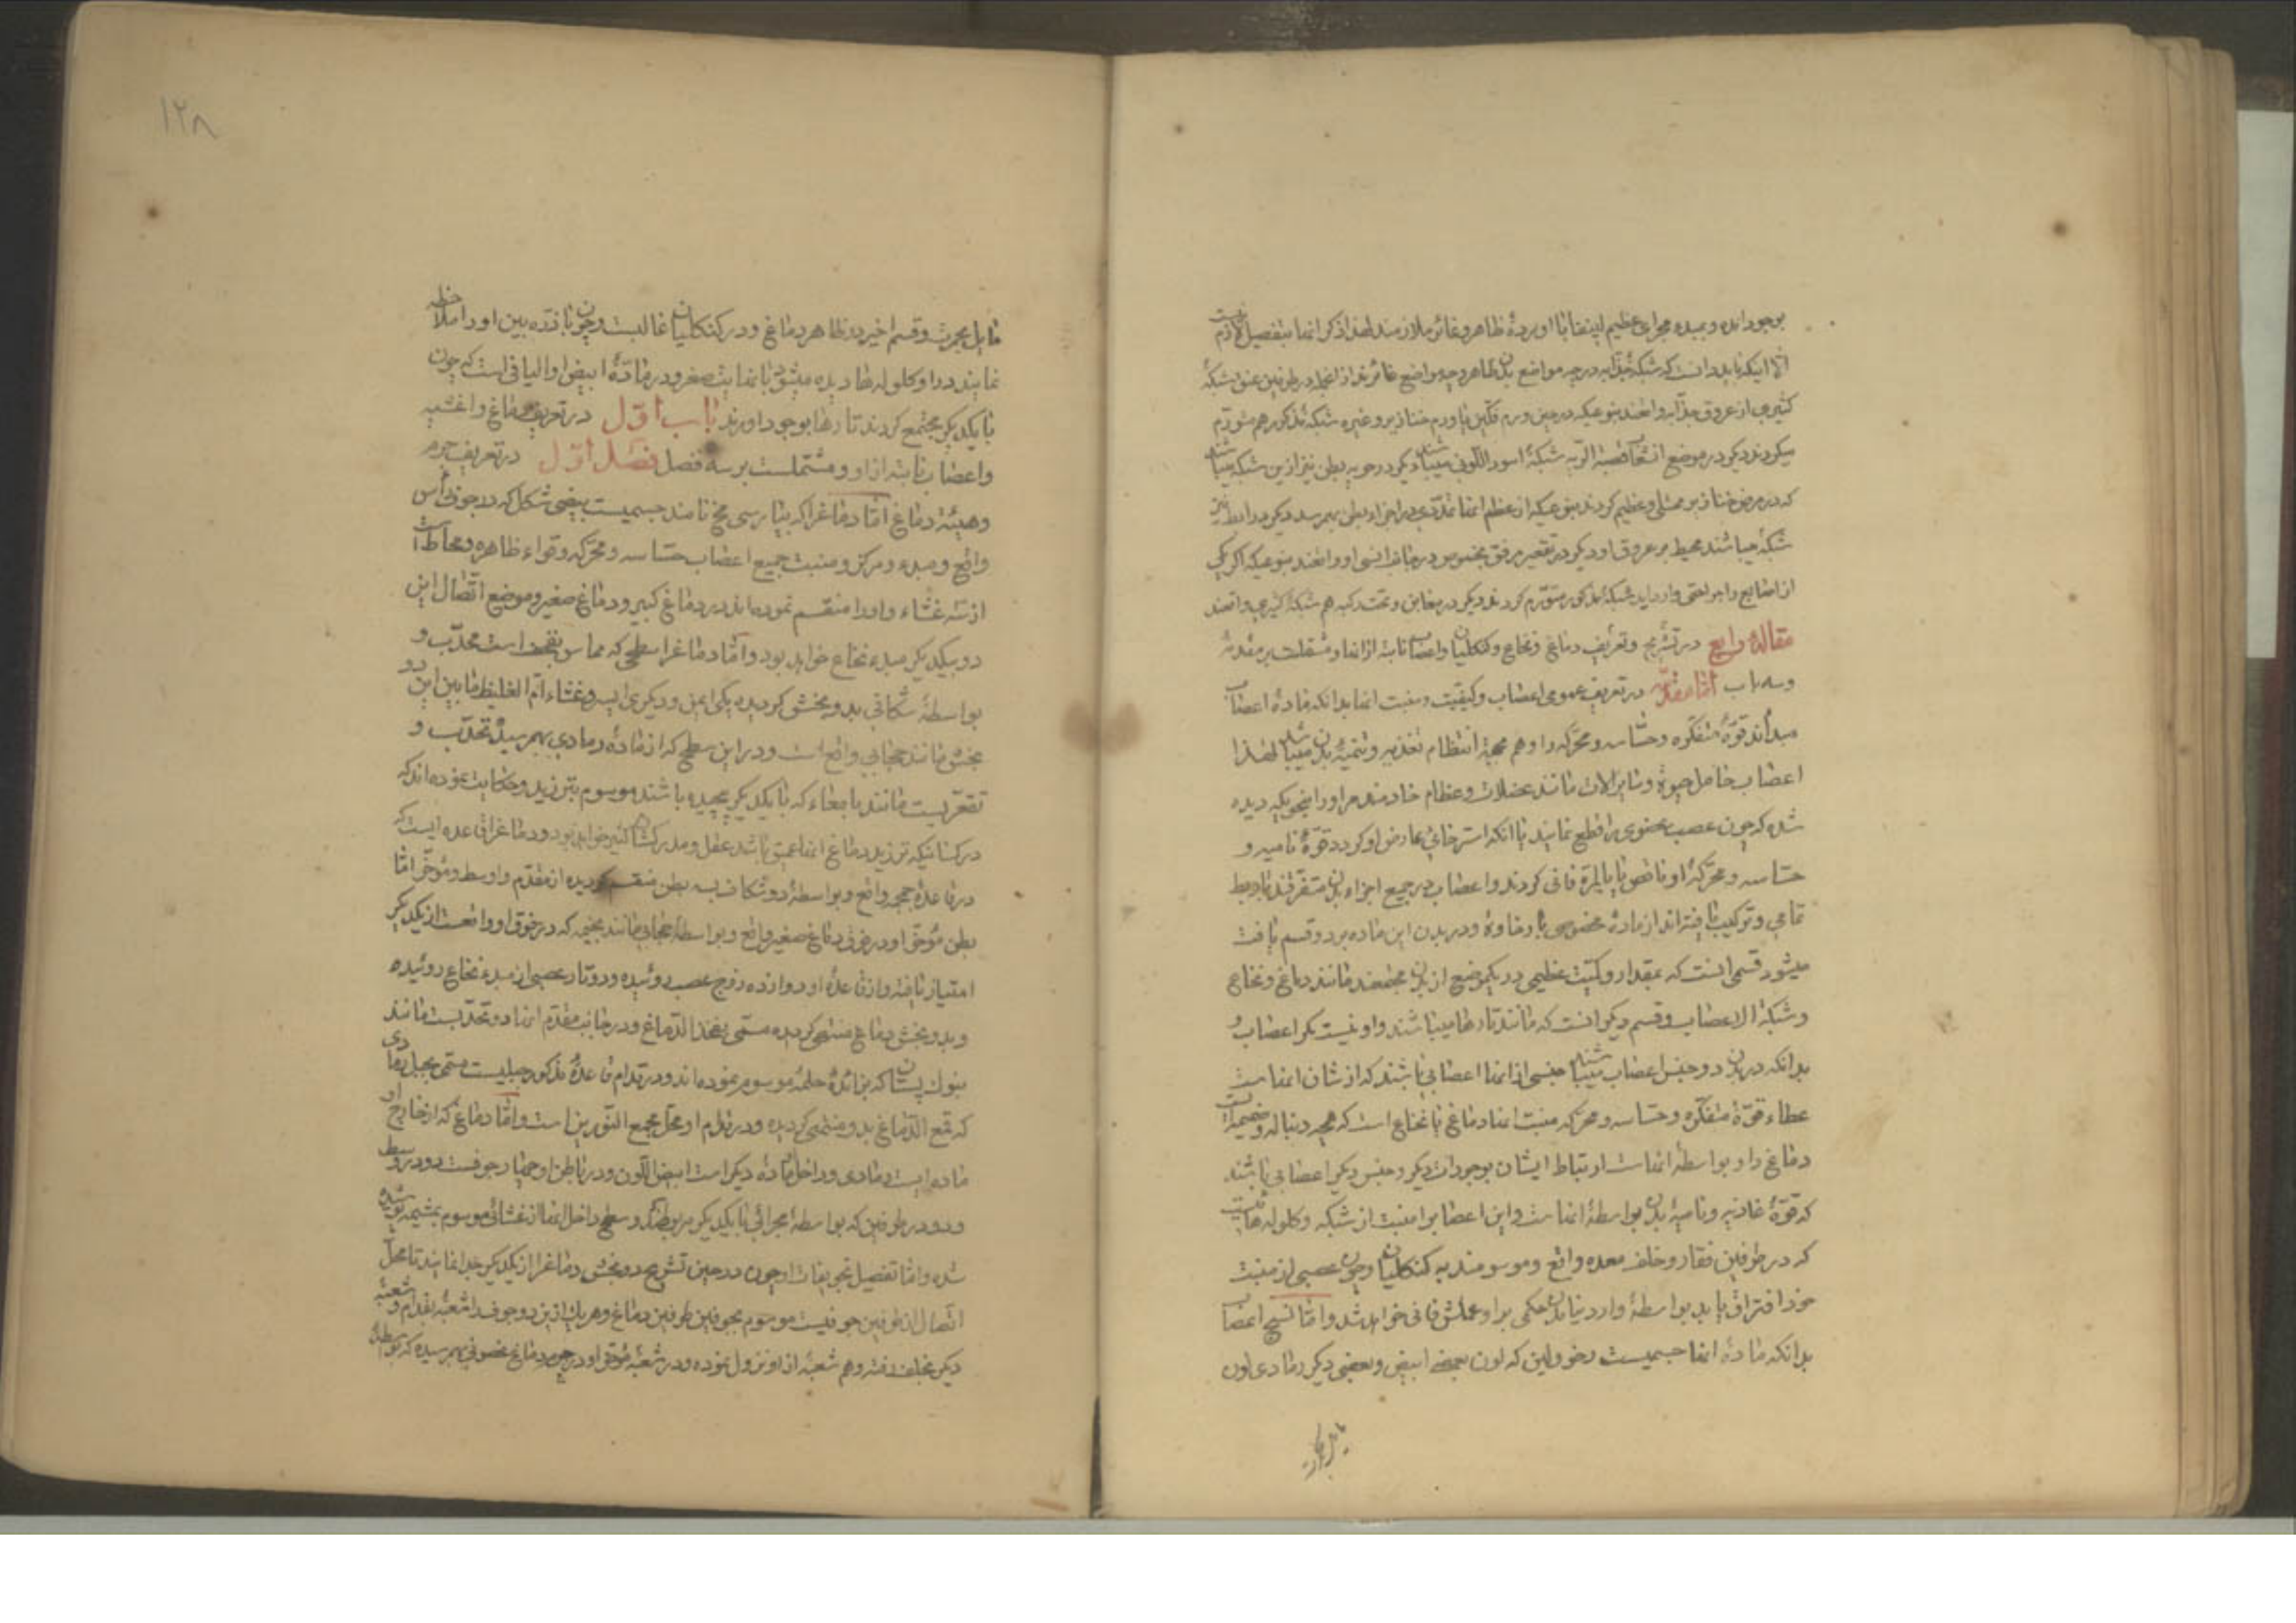 بوجود امده و بمبده مجرای عظیم لینفایا اوبردهٔ ظاهر و غائر ملازمند لهذا ذکر انها بتفصیل لازم نیست
الا اینکه باید دانست که شبکهٔ جذابه در چه مواضع بدن ظاهر و چه مواضع غائرند از انجمله در طرفین عنق شبکهٔ
کثیری از عروق جذابه واقعند بنوعیکه در حین ورم فکین یا ورم خنازیر و غیره شبکه مذکوره هم متورم
میکردند دیکر در موضع انشعاب قصبة الریه شبکهٔ اسود اللونی میباشد دیکر در حویه بطن نیز ازین شبکه میباشد
که در مرض خنازیر ممتلی و عظیم کردند بنوعیکه از عظم انها تمددی در اجزاء بطن بهم رسد دیکر در ابط نیز
شبکهٔ میباشند محیط بر عروق او دیکر در تقعیر مرفق بخصوص در جانب انسی او واقعند بنوعیکه اکر یکی
از اصابع را جراحتی وارد اید شبکهٔ مذکور متورم کردند دیکر در مغابن و تحت رکبه هم شبکهٔ کثیری واقعند
مقالهٔ رابع در تشریح و تعریف دماغ و نخاع و کنکلیان و اعصاب نابته از انها و مشتملست بر مقدمه
و سه باب اما مقدمه در تعریف عمومی اعصاب و کیفیت و منبت انها بدانکه مادهٔ اعصاب
مبدأند قوهٔ متفکره و حساسه و محرکه را و هم بجهة انتظام تغذیه و تنمیهٔ بدن میباشند لهذا
اعصاب حامل حیوة و سایر الات مانند عضلات و عظام خادمند مر او را بنحویکه دیده
شده که چون عصب عضوی را قطع نمایند یا انکه استرخائی عارض او کردد قوهٔ نامیه و
حساسه و محرکهٔ او ناقص یا بالمرة فانی کردند و اعصاب در جمیع اجزاء بدن متفرقند بادبط
تمامی و ترکیب یافته اند از مادهٔ مخصوصی با رخاوة و در بدن این ماده بر دو قسم یافت
میشود قسمی انست که بمقدار و کمیت عظیمی در یکموضع از بدن مجتمعند مانند دماغ و نخاع
و شبکة الاعصاب و قسم دیکر انست که مانند تارها میباشند و او نیست مکر اعصاب و
بدانکه در بدن دو جنس اعصاب میباشند جنسی از انها اعصابی باشند که از شان انهاست
عطاء قوة متفکره و حساسه و محرکه منبت انها دماغ یا نخاع است که همچه دنباله و ضمیمه است
دماغ را و بواسطهٔ انهاست ارتباط ایشان بوجودات دیکر و جنس دیکر اعصابی باشند
که قوهٔ غاذیه و نامیهٔ بدن بواسطهٔ انهاست و این اعصاب را منبت از شبکه و کلوله هائیست
که در طرفین فقار و خلف معده واقع و موسومند به کنکلیان و چون عصبی از منبت
خود افتراق یابد بواسطهٔ وارد نیامدن حکمی بر او عملش فانی خواهد شد و اما نسج اعصاب
بدانکه مادهٔ انها جسمیست رخو و لین که لون بعضی ابیض و بعضی دیکر رمادی لون
مایل بحمرت و قسم اخیر در ظاهر دماغ و در کنکلیان غالبست و چون با ذره بین او را ملاحظه
نمایند در او کلوله ها دیده میشود با نهایت صغر و در مادهٔ ابیض او الیافی است که چون
با یکدیکر مجتمع کردند تارها بوجود اورند باب اول در تعریف دماغ و اغشیه
و اعصاب نابته از او و مشتملست بر سه فصل فصل اول در تعریف جرم
و هیئة دماغ اما دماغرا که بپارسی مخ نامند جسمیست بیضی شکل که در جوف رأس
واقع و مبدء و مرکز و منبت جمیع اعصاب حساسه و محرکه و قواء ظاهره و محاط است
از سه غشاء و او را منقسم نموده اند بر دماغ کبیر و دماغ صغیر و موضع اتصال این
دو بیکدیکر مبدء نخاع خواهد بود و اما دماغرا سطحی که مماس بقحف است محدب و
بواسطهٔ شکافی بدو بخش کردیده یکی ایمن و دیکری ایسر و غشاء ام الغلیظ ما بین این دو
بخش مانند حجابی واقع است و در این سطح که از مادهٔ رمادی بهم رسیده تحدب و
تقعریست مانند بامعاء که با یکدیکر پیچیده باشند موسوم بتزرید و حکایت نموده اند که
در کسانیکه تزرید دماغ انها عمیق باشد عقل و مدرکشان کثیر خواهد بود و دماغرا قاعده ایست که
در قاعدهٔ جمجمه واقع و بواسطهٔ دو شکاف بسه بطن منقسم کردیده از مقدم و اوسط و مؤخر اما
بطن مؤخر او در فوق دماغ صغیر واقع و بواسطهٔ حجابی مانند بخیمه که در فوق او واقعست از یکدیکر
امتیاز یافته و از قاعدهٔ او دوازده زوج عصب روئیده و دو تار عصبی از مبدء نخاع روئیده
و بدو بخش دماغ منتهی کردیده مسمی بفخذ الدماغ و در جانب مقدم انها دو تحدبست مانند
بنوک پستان که بزائدهٔ حلمهٔ موسوم نموده اند و در قدام قاعدهٔ مذکور جبلیست مسمی بجبل رمادی
که قمع الدماغ بدو منتهی کردیده و در قدام او محل مجمع النورین است و اما دماغ که از خارج او
ماده ایست رمادی و داخل مادهٔ دیکر است ابیض اللون و در باطن او چهار جوفست دو در وسط
و دو در طرفین که بواسطهٔ مجرائی با یکدیکر مربوطند و سطح داخل انها از غشائی موسوم بمشیمه پوشیده
شده و اما تفصیل تجویفات او چون در حین تشریح دو بخش دماغرا از یکدیکر جدا نمایند تا محل
اتصال از طرفین جوفیست موسوم بجوفین طرفین دماغ و هر یک ازین دو جوف را شعبهٔ بقدام و شعبهٔ
دیکر بخلف رفته و هم شعبهٔ از او نزول نموده و در شعبهٔ مؤخر او در جرم دماغ غضونی بهم رسیده که بواسطهٔ
مایل بحمرت
۱۲۸